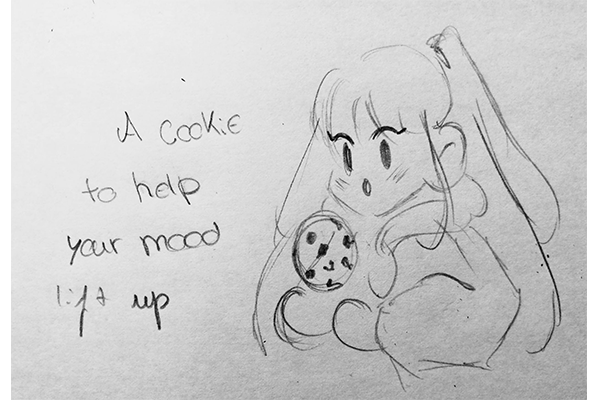 A cookie
to help
your mood
lift up